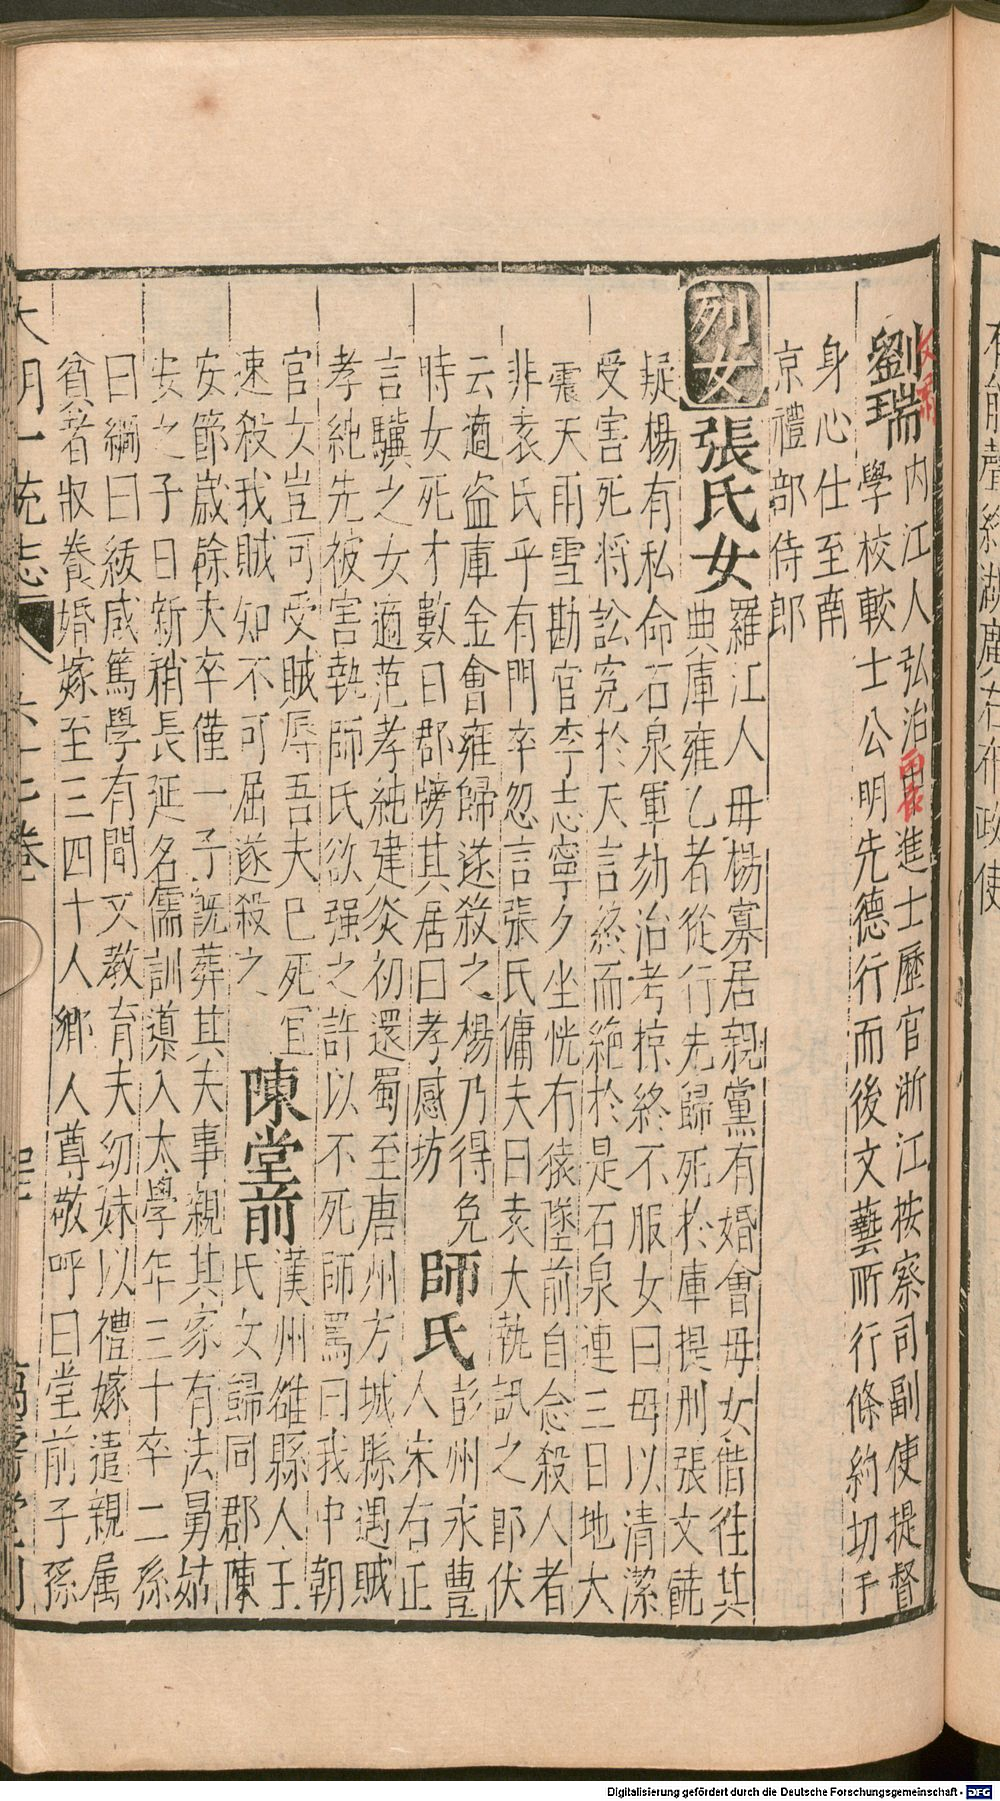 有能聲終湖廣左布政使
文肅
劉瑞
內江人弘治丙辰進士歷官浙江按察司副使提督
學校較士公明先德行而後文藝所行條約切于
身心仕至南
京禮部侍郎
列女
張氏女
羅江人毋楊寡居親黨有婚會毋女偕往其
典庫雍乙者從行先歸死於庫提刑張文饒
疑楊有私命石泉軍劾治考掠終不服女曰毋以清潔
受害死将訟寃於天言終而絶於是石泉連三日地大
震天雨雪勘官李志寧夕坐恍有猿墜前自念殺人者
非袁氏乎有門卒忽言張氏傭夫曰袁大執訊之即伏
云適盜庫金會雍歸遂殺之楊乃得免
時女死才數日郡牓其居曰孝感坊
師氏
彭州永豐
人宋右正
言驥之女適范孝純建炎初還蜀至唐州方城縣遇賊
孝純先被害執師氏欲强之許以不死師罵曰我中朝
官女豈可受賊辱吾夫已死宜
速殺我賊知不可屈遂殺之
陳堂前
漢州雒縣人王
氏女歸同郡陳
安節歲餘夫卒僅一子旣葬其夫事親其家有法舅姑
安之子日新稍長延名儒訓導入太學年三十卒二孫
曰綱曰紱咸篤學有聞又教育夫幼妹以禮嫁遣親属
貧者収養婚嫁至三四十人鄉人尊敬呼曰堂前子孫
大明一統志 六十七卷 萬壽堂刊
Digitalisierung gefördert durch die Deutsche Forschungsgemeinschaft - DFG